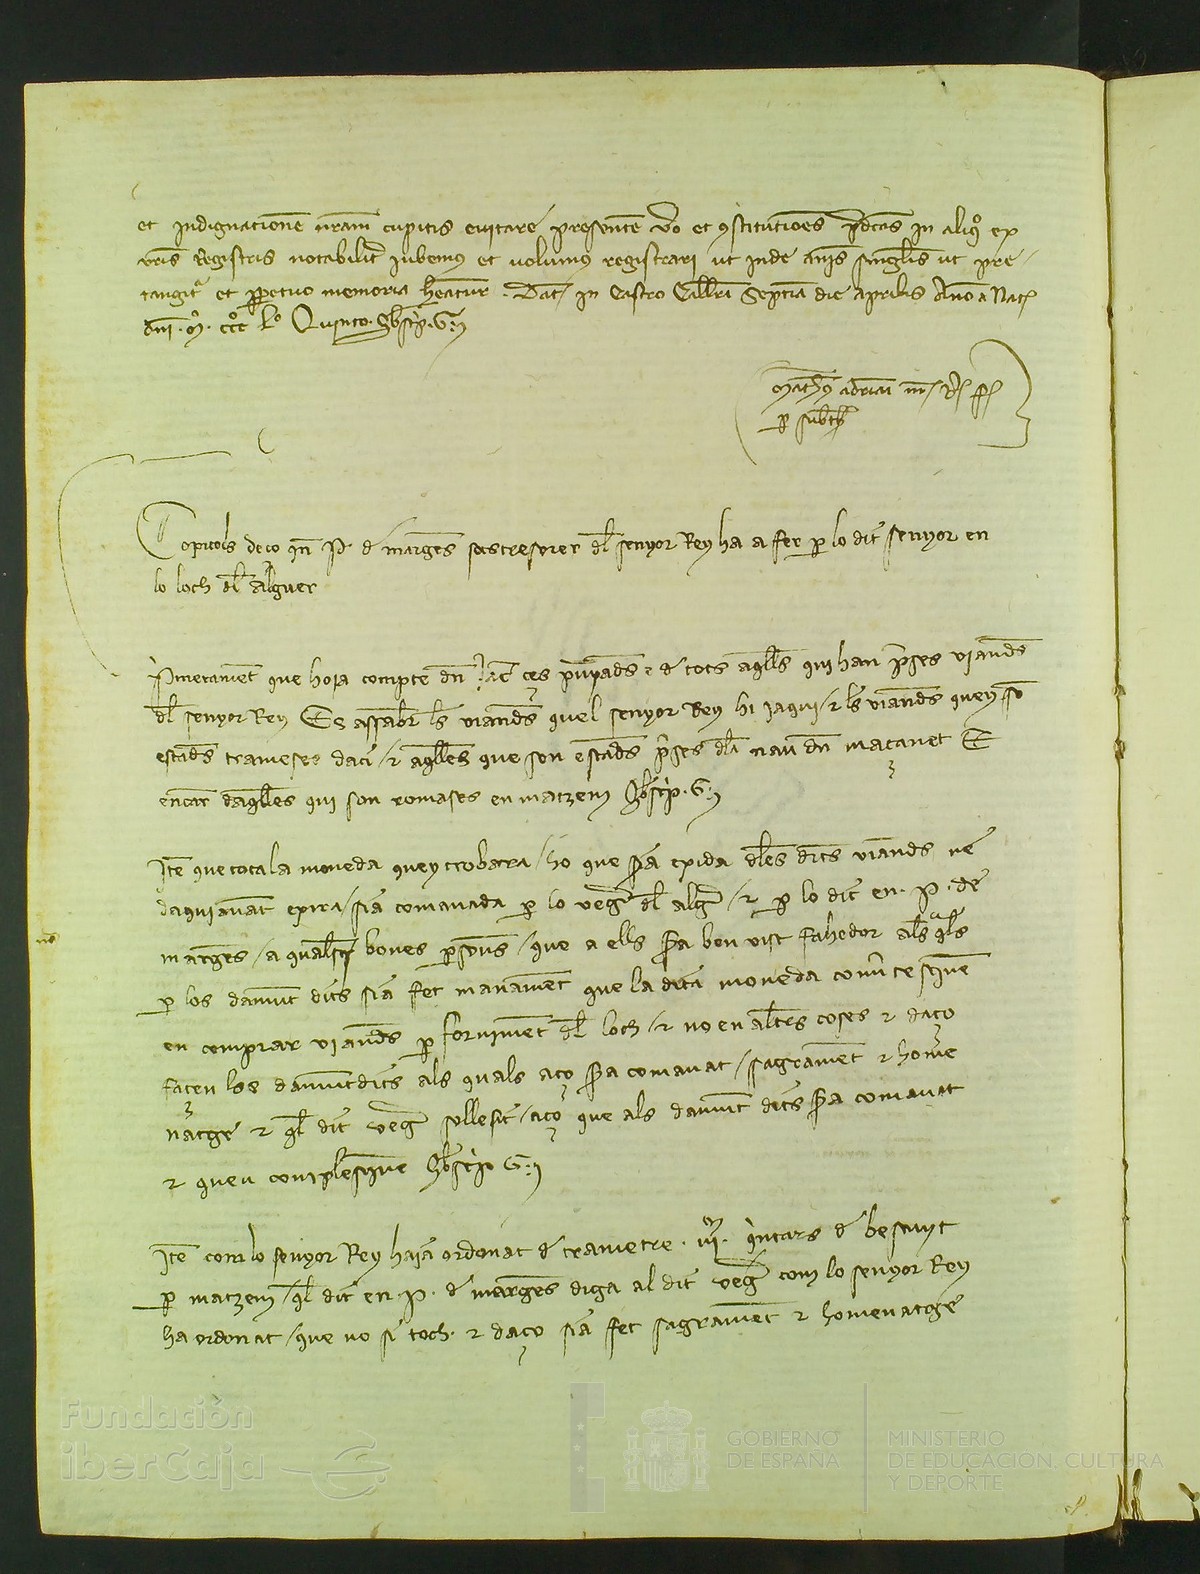 et indignationem nram cupitis evitare presentem vo et constitutiones pdcas in aliquo ex
vris Registris notabilit iubemus et volumus registrari ut inde
tangit et perpetuo memoria heatur. Dat in Castro Callri Septia die Aprilis Anno a Nat
dni. M. ccc Lo Quinto.
Matheus adriani
p
Capitols de ço qn P. de marges sostresorer dl senyor Rey ha a fer p lo dit senyor en
lo loch dl alguer
Primerament que hoja compte dn e de tots aqlls qui han preses viandes
dl senyor Rey Es assaber les viandes quel senyor Rey hi jaqui / e les viandes quey so
estades trameses daci / e aqlles que son estades preses dla nau dn maçanet E
encar daqlles qui son romases en matzem
Ite que tota la moneda quey trobara / ho que sia exida dles dites viandes ne
daqui auat exira / sia comanada p lo veguer dl alguer / e p lo dit en. P. de
marges / a quals bones psones / que a ells sia ben vist fahedor als qls
p los damut dits sia fet manament que la dita moneda
en comprar viandes p forniment dl loch / e no en altres coses e daço
facen los damutdits als quals aço sia comanat / sagrament e home
natge e ql dit veguer aço que als damut dits sia comanat
e queu
Ite com lo senyor Rey haia ordonat de trametre. quintars de bescuyt
p matzem / ql dit en. P. de marges diga al dit veguer com lo senyor Rey
ha ordonat / que no si toch. e daço sia fet sagrament e homenatge
Fundación
iberCaja
GOBIERNO
DE ESPAÑA
MINISTERIO
DE EDUCACIÓN, CULTURA
Y DEPORTE